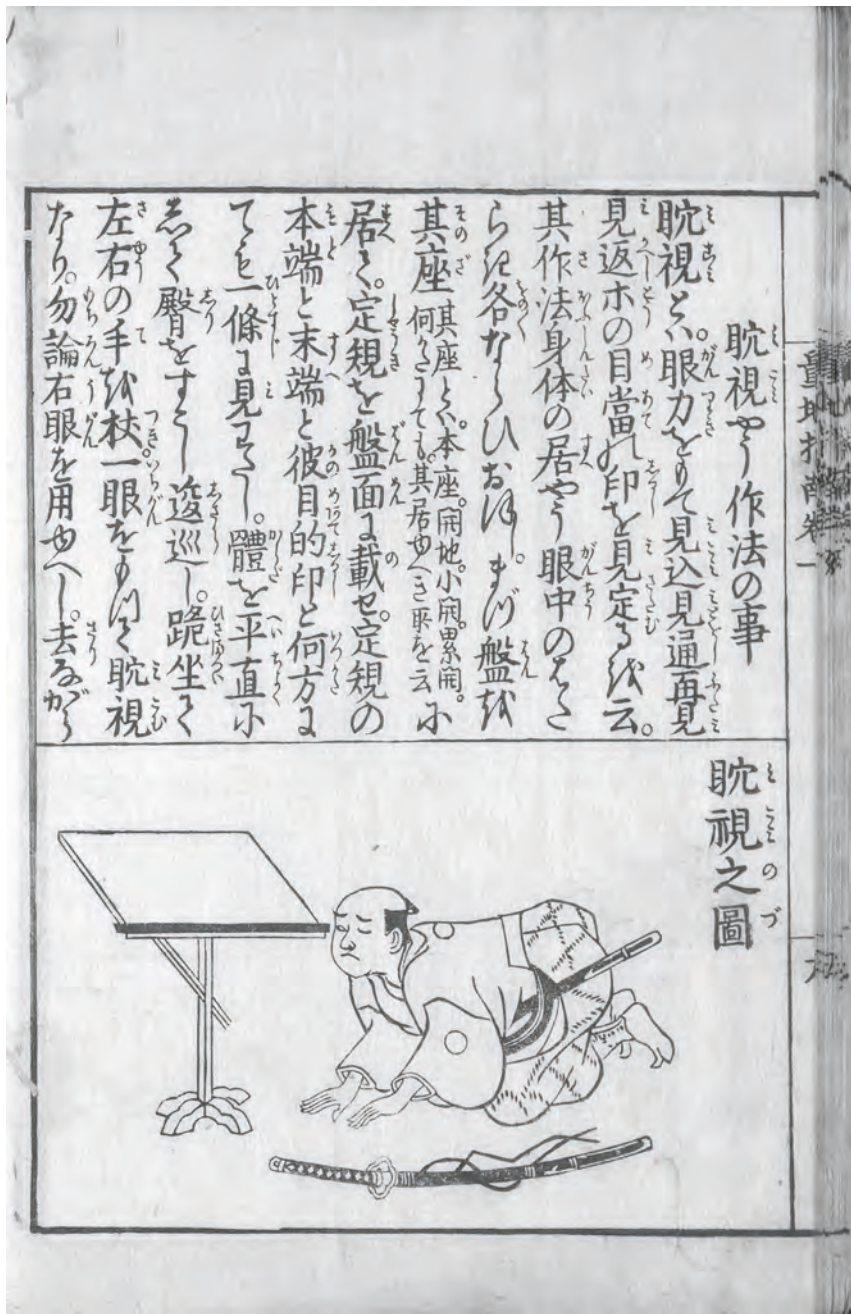 眈視やう作法の事
眈視とハ。眼力をもて見込見通再見
見返ホの目當の印を見定るを云。
其作法身体の居やう眼中のはた
らき各ならひおほし。まづ盤を
其座 其座とハ。本座。開地。小開。累開。何れにても。其居ゆべき所を云 に
居て。定規を盤面に載せ。定規の
本端と末端と彼目的印と何方に
ても一條に見わたし。體を平直に
して臀をすこし逡巡し。跪坐て
左右の手を杖一眼をもつて眈視
なり。勿論右眼を用ゆべし。去ながら
眈視之圖
量地指南卷一